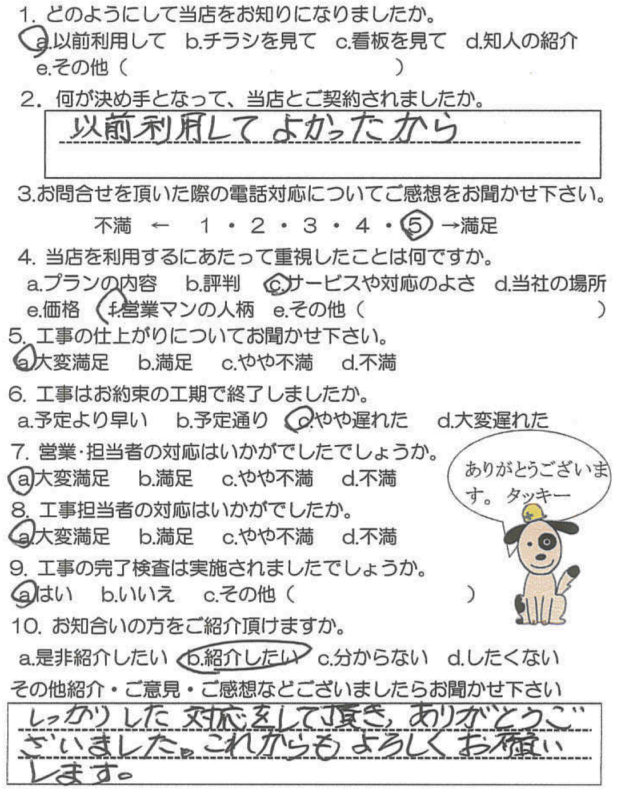 1. どのようにして当店をお知りになりましたか。
a.以前利用して b.チラシを見て c.看板を見て d.知人の紹介
e.その他（ ）
2. 何が決め手となって、当店とご契約されましたか。
以前利用して よかったから
3.お問合せを頂いた際の電話対応についてご感想をお聞かせ下さい。
不満 ← 1 ・ 2 ・ 3 ・ 4 ・ 5 →満足
4. 当店を利用するにあたって重視したことは何ですか。
a.プランの内容 b.評判 c.サービスや対応のよさ d.当社の場所
e.価格 f.営業マンの人柄 e.その他（ ）
5. 工事の仕上がりについてお聞かせ下さい。
a.大変満足 b.満足 c.やや不満 d.不満
6. 工事はお約束の工期で終了しましたか。
a.予定より早い b.予定通り c.やや遅れた d.大変遅れた
7. 営業・担当者の対応はいかがでしたでしょうか。
a.大変満足 b.満足 c.やや不満 d.不満
8. 工事担当者の対応はいかがでしたか。
a.大変満足 b.満足 c.やや不満 d.不満
ありがとうございま
す。 タッキー
9. 工事の完了検査は実施されましたでしょうか。
a.はい b.いいえ c.その他（ ）
10. お知合いの方をご紹介頂けますか。
a.是非紹介したい b.紹介したい c.分からない d.したくない
その他紹介・ご意見・ご感想などございましたらお聞かせ下さい
しっかりした 対応をして頂き、ありがとうご
ざいました。これからも よろしく お願い
します。